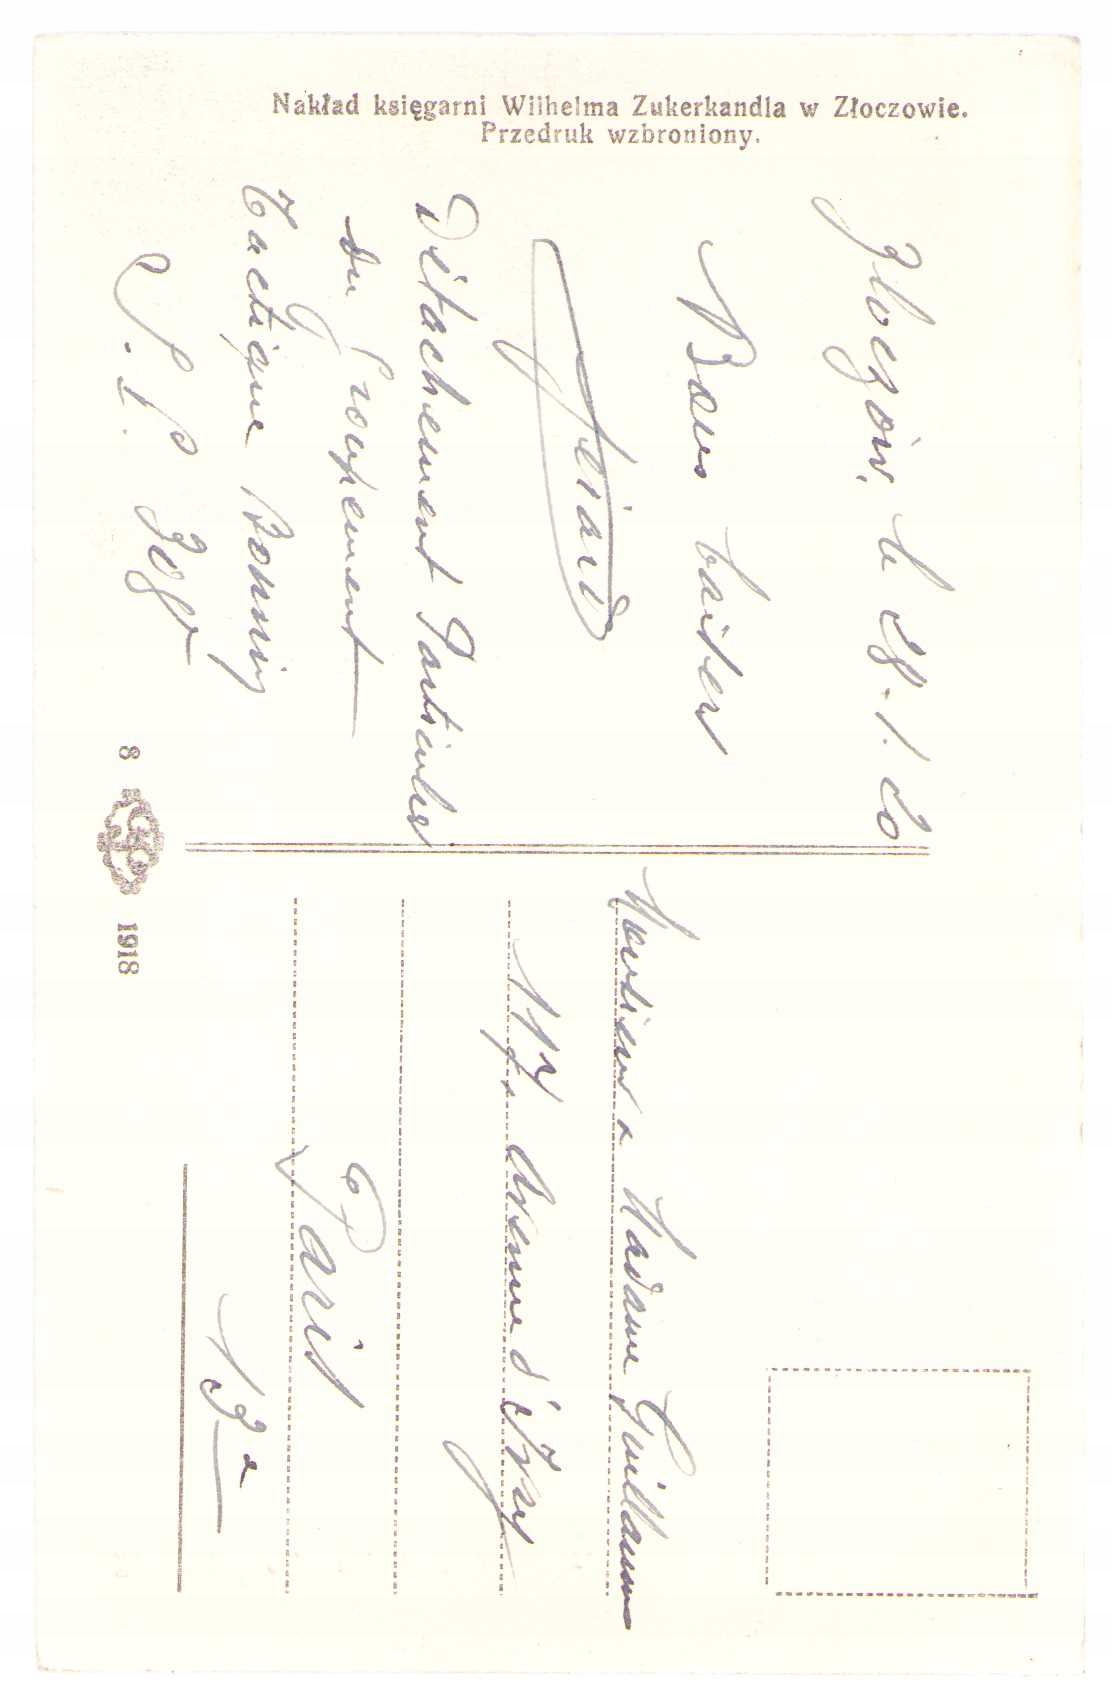 Nakład księgarni Wilhelma Zukerkandla w Złoczowie.
Przedruk wzbroniony.
Zloczów, le 28.1.20
Bons baisers
Détachement Particulier
du Groupement
Tactique Bonnin
S.P. 308
8 1918
Monsieur & Madame Guillaume
117, Avenue d'Ivry
Paris
13e